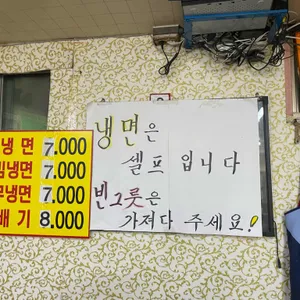 냉면 7.000
냉면 7.000
냉면 7.000
배기 8.000
냉면은
셀프 입니다
빈그릇은
가져다 주세요!